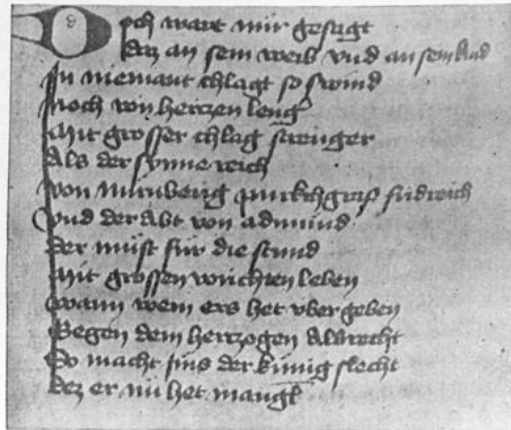 och wart mir gesagt
daz an sein weib vnd an sein kind
In niemant chlagt so swind
Noch von hertzen leng
Mit grosser chlag strenger
Als der synne reich
Von Nurnberg purkchgraf fridreich
Vnd der Abt von admund
Der must fur die stund
Mit grossen leben
Wann wem ers het vbergeben
Gegen dem hertzogen Albrecht
So macht sins der kunig slecht
dez er nu het mangk